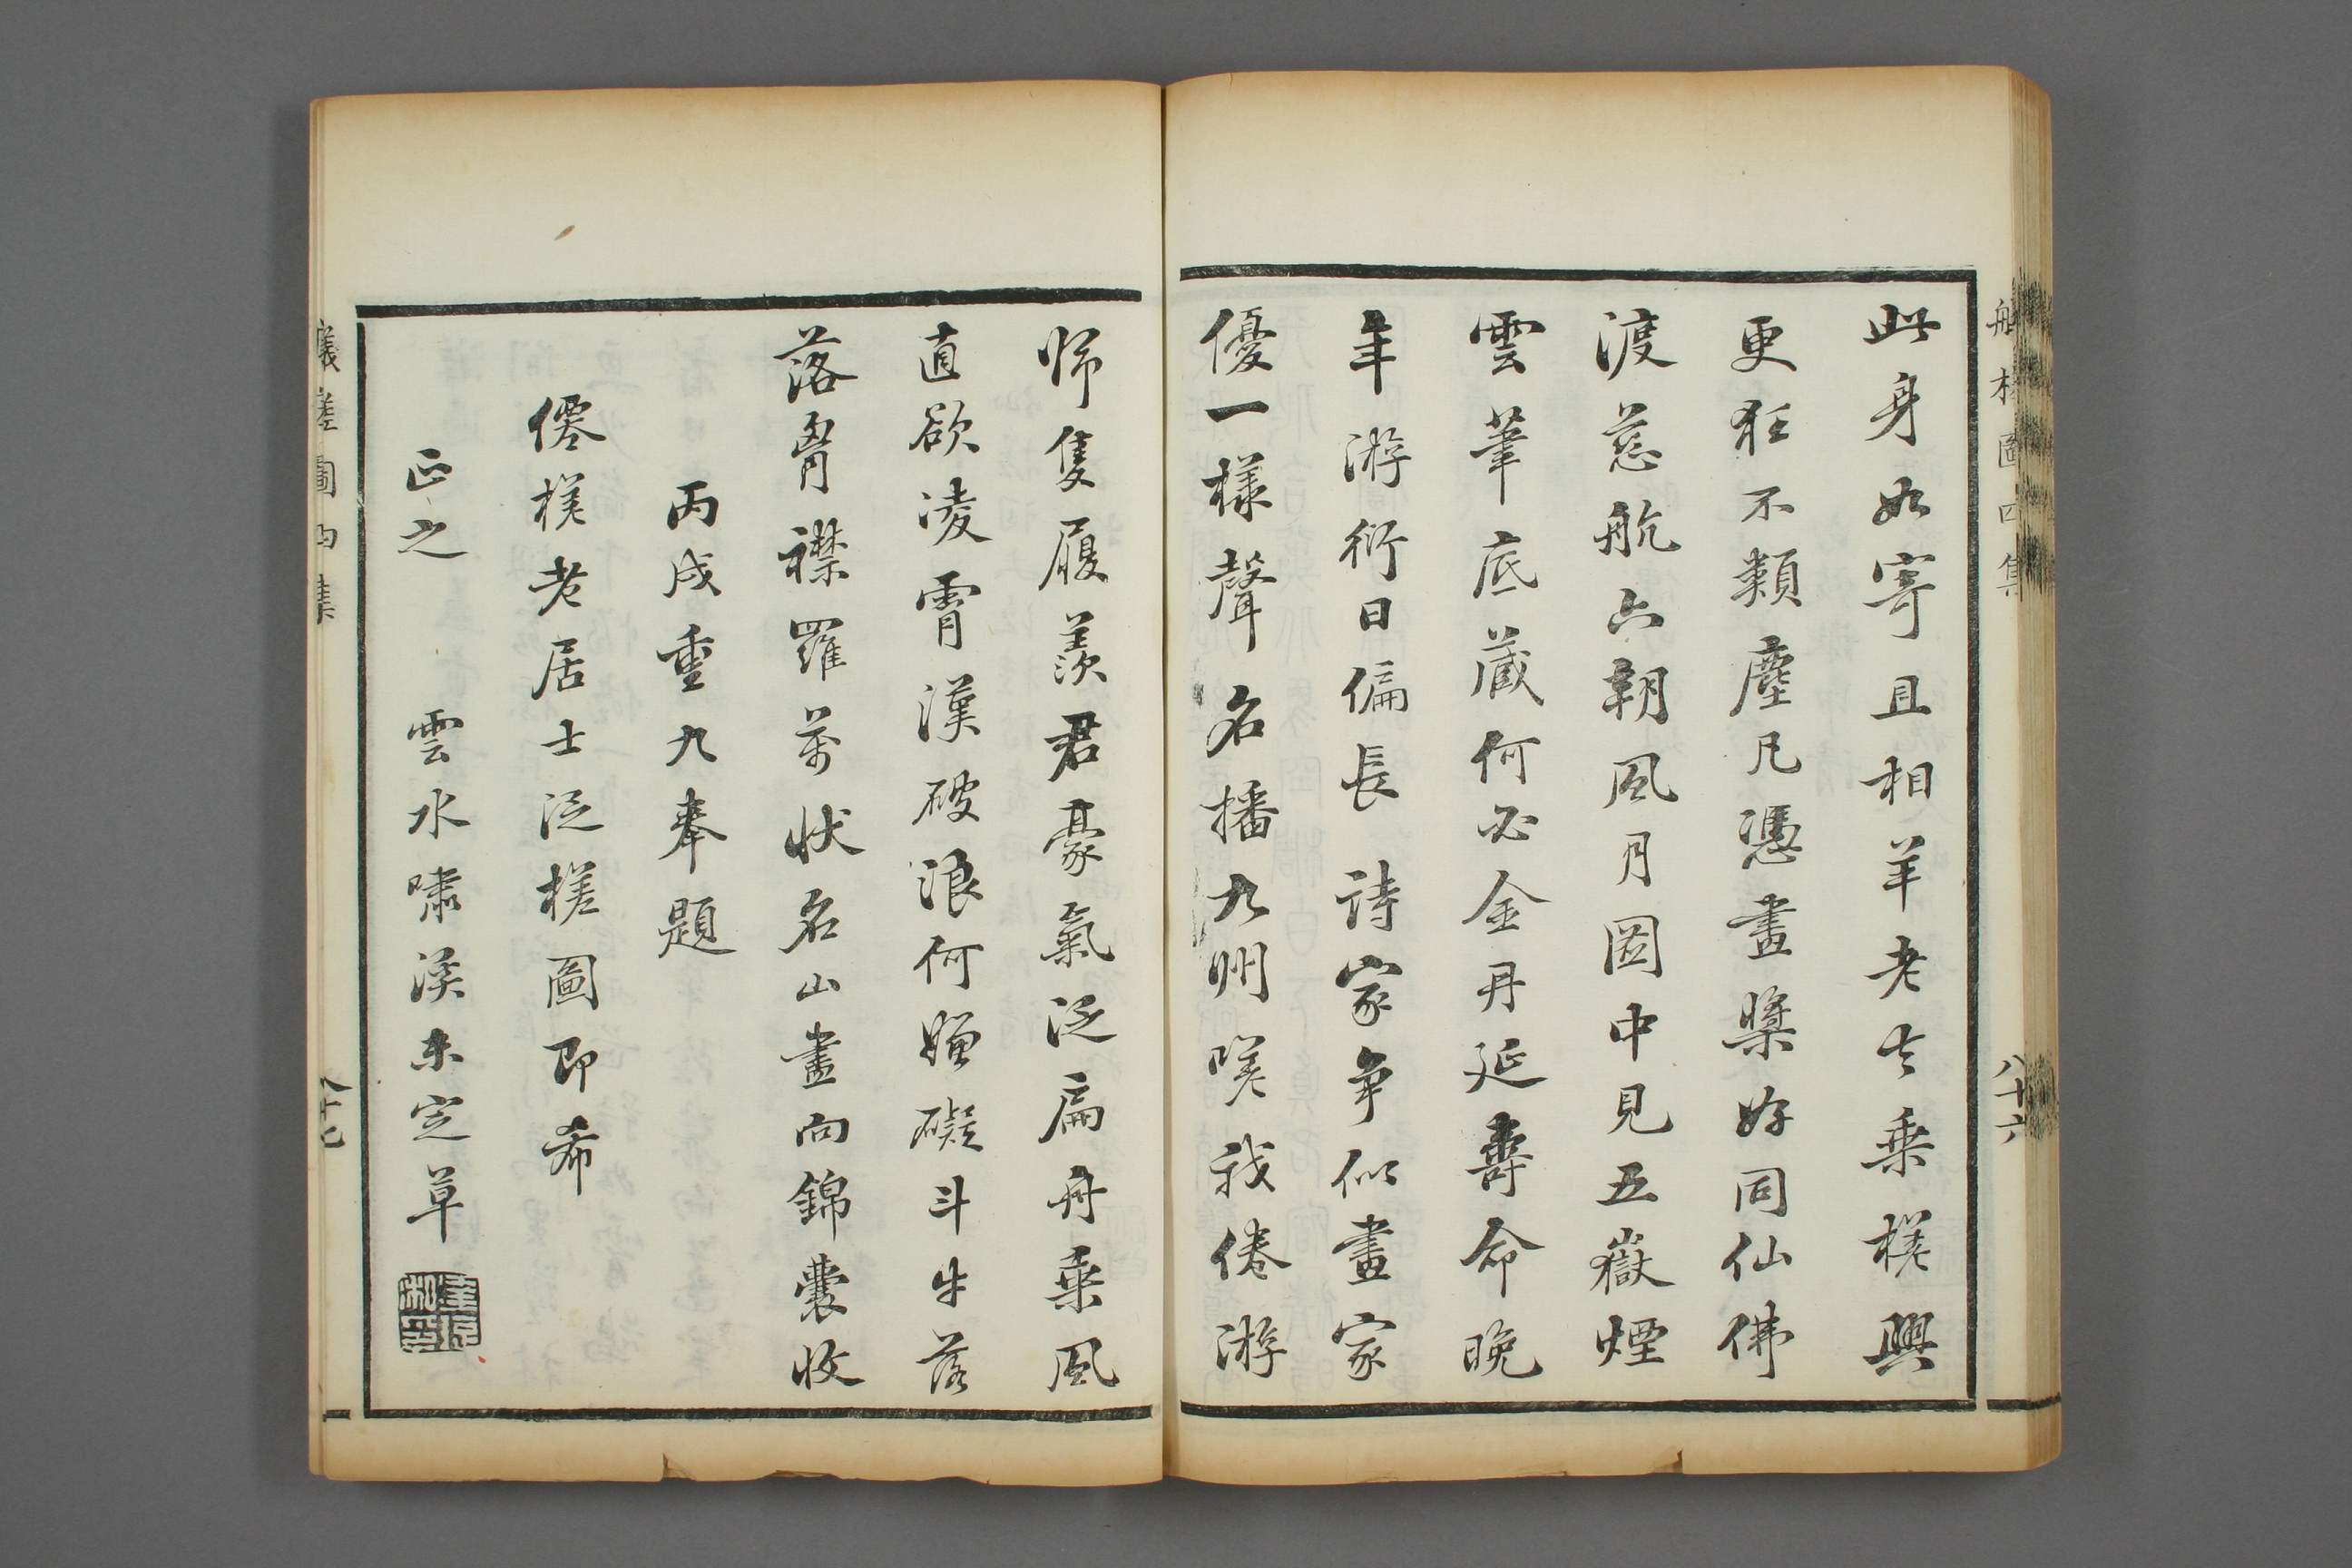 此身如寄且相羊老去乗槎興
更狂不類塵凡憑畫槳好同仙佛
渡慈航六朝風月圖中見五嶽煙
雲筆底藏何必金丹延壽命晚
年游衍日偏長詩家争似畫家
優一樣聲名播九州嘆我倦游
歸隻履羨君豪氣泛扁舟乗風
直欲凌霄漢破浪何嫌礙斗牛落
落胷襟羅萬狀名山畫向錦囊收
丙戌重九奉題
僊槎老居士泛槎圖即希
正之
雲水嘯溪未定草
槎圖四集
八十六
八十七